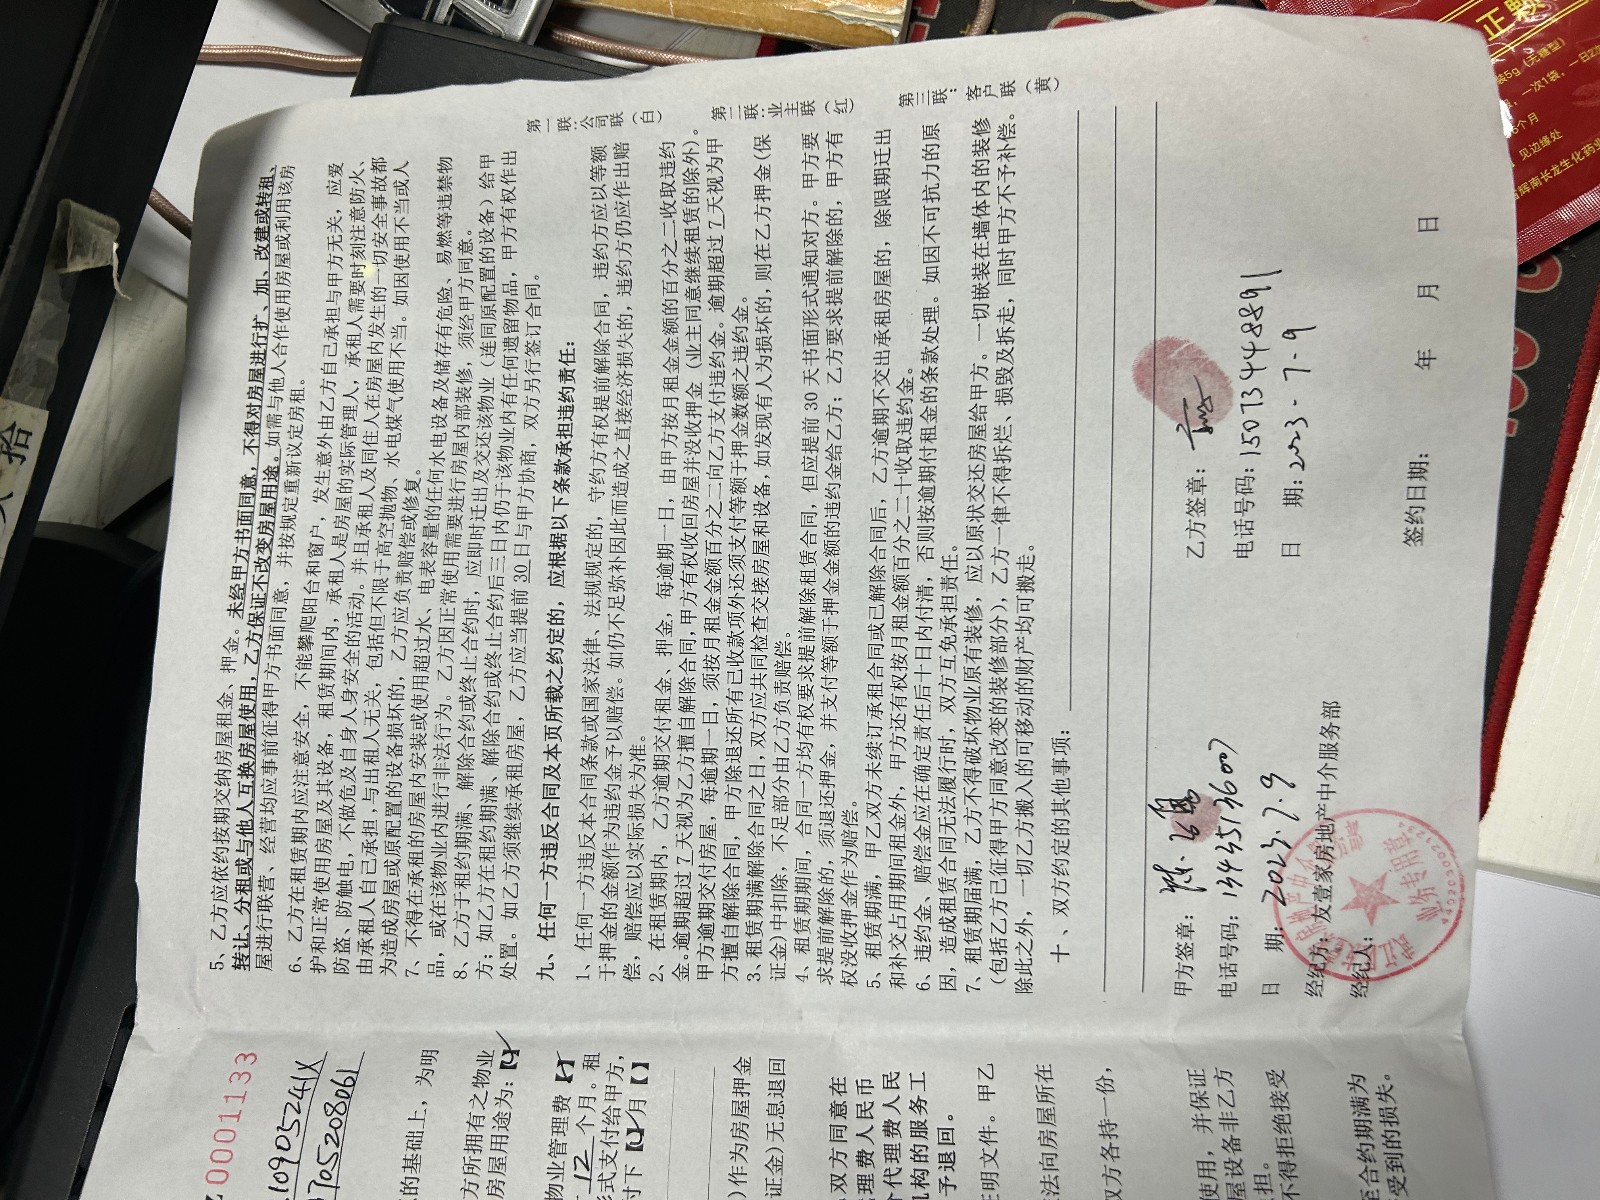 5、乙方应依约按期交纳房屋租金、押金。未经甲方书面同意，不得对房屋进行扩、加、改建或转租、
转让、分租或与他人互换房屋使用，乙方保证不改变房屋用途。如需与他人合作使用房屋或利用该房
屋进行联营、经营均应事前征得甲方书面同意，并按规定重新议定房租。
6、乙方在租赁期内应注意安全，不能攀爬阳台和窗户，发生意外由乙方自己承担与甲方无关，应爱
护和正常使用房屋及其设备，租赁期间内，承租人是房屋的实际管理人，承租人需要时刻注意防火、
防盗、防触电，不做危及自身人身安全的活动。并且承租人及同住人在房屋内发生的一切安全事故都
由承租人自己承担，与出租人无关，包括但不限于高空抛物、水电煤气使用不当。如因使用不当或人
为造成房屋或原配置的设备损坏的，乙方应负责赔偿或修复。
7、不得在承租的房屋内安装或使用超过水、电表容量的任何水电设备及储存有危险、易燃等违禁物
品，或在该物业内进行非法行为。乙方因正常使用需要进行房屋内部装修，须经甲方同意。
8、乙方于租约期满、解除合约或终止合约时，应即时迁出及交还该物业（连同原配置的设备）给甲
方；如乙方在租约期满、解除合约或终止合约后三日内仍于该物业内有任何遗留物品，甲方有权作出
处置。如乙方须继续承租房屋，乙方应当提前30日与甲方协商，双方另行签订合同。
九、任何一方违反合同及本页所载之约定的，应根据以下条款承担违约责任：
1、任何一方违反本合同条款或国家法律、法规规定的，守约方有权提前解除合同，违约方应以等额
于押金的金额作为违约金予以赔偿。如仍不足弥补因此而造成之直接经济损失的，违约方仍应作出赔
偿，赔偿应以实际损失为准。
2、在租赁期内，乙方逾期交付租金、押金，每逾期一日，由甲方按月租金金额的百分之二收取违约
金。逾期超过7天视为乙方擅自解除合同，甲方有权收回房屋并没收押金（业主同意继续租赁的除外）。
甲方逾期交付房屋，每逾期一日，须按月租金金额百分之二向乙方支付违约金。逾期超过7天视为甲
方擅自解除合同，甲方除退还所有已收款项外还须支付等额于押金数额之违约金。
3、租赁期满解除合同之日，双方应共同检查交接房屋和设备，如发现有人为损坏的，则在乙方押金(保
证金)中扣除，不足部分由乙方负责赔偿。
4、租赁期期间，合同一方均有权要求提前解除租赁合同，但应提前30天书面形式通知对方。甲方要
求提前解除的，须退还押金，并支付等额于押金金额的违约金给乙方；乙方要求提前解除的，甲方有
权没收押金作为赔偿。
5、租赁期满，甲乙双方未续订承租合同或已解除合同后，乙方逾期不交出承租房屋的，除限期迁出
和补交占用期间租金外，甲方还有权按月租金额百分之二十收取违约金。
6、违约金、赔偿金应在确定责任后十日内付清，否则按逾期付租金的条款处理。如因不可抗力的原
因，造成租赁合同无法履行时，双方互免承担责任。
7、租赁期届满，乙方不得破坏物业原有装修，应以原状交还房屋给甲方。一切嵌装在墙体内的装修
（包括乙方已征得甲方同意改变的装修部分），乙方一律不得拆烂、损毁及拆走，同时甲方不予补偿。
除此之外，一切乙方搬入的可移动的财产均可搬走。
十、双方约定的其他事项：
第一联：公司联（白）
第二联：业主联（红）
第三联：客户联（黄）
甲方签章：
电话号码：13435136007
日 期：2023.7.9
经纪方：友壹家房地产中介服务部
经纪人：
业务专用章
乙方签章：
电话号码：15073448891
日 期：2023.7.9
签约日期： 年 月 日
0001133
109035241X
705208061
的基础上，为明
方所拥有之物业
房屋用途为：【✓
物业管理费【✓】
12个月。租
形式支付给甲方，
付下【✓】月【 】
）作为房屋押金
证金）无息退回
双方同意在
理费人民币
代理费人民
机构的服务工
予退回。
证明文件。甲乙
法向房屋所在
双方各持一份，
使用，并保证
屋设备非乙方
担。
不得拒绝接受
至合约期满为
受到的损失。
拾
正颗
装5g（无糖型）
，一次1袋，一日2
6个月
见边缘处
吉辉南长龙生化药业